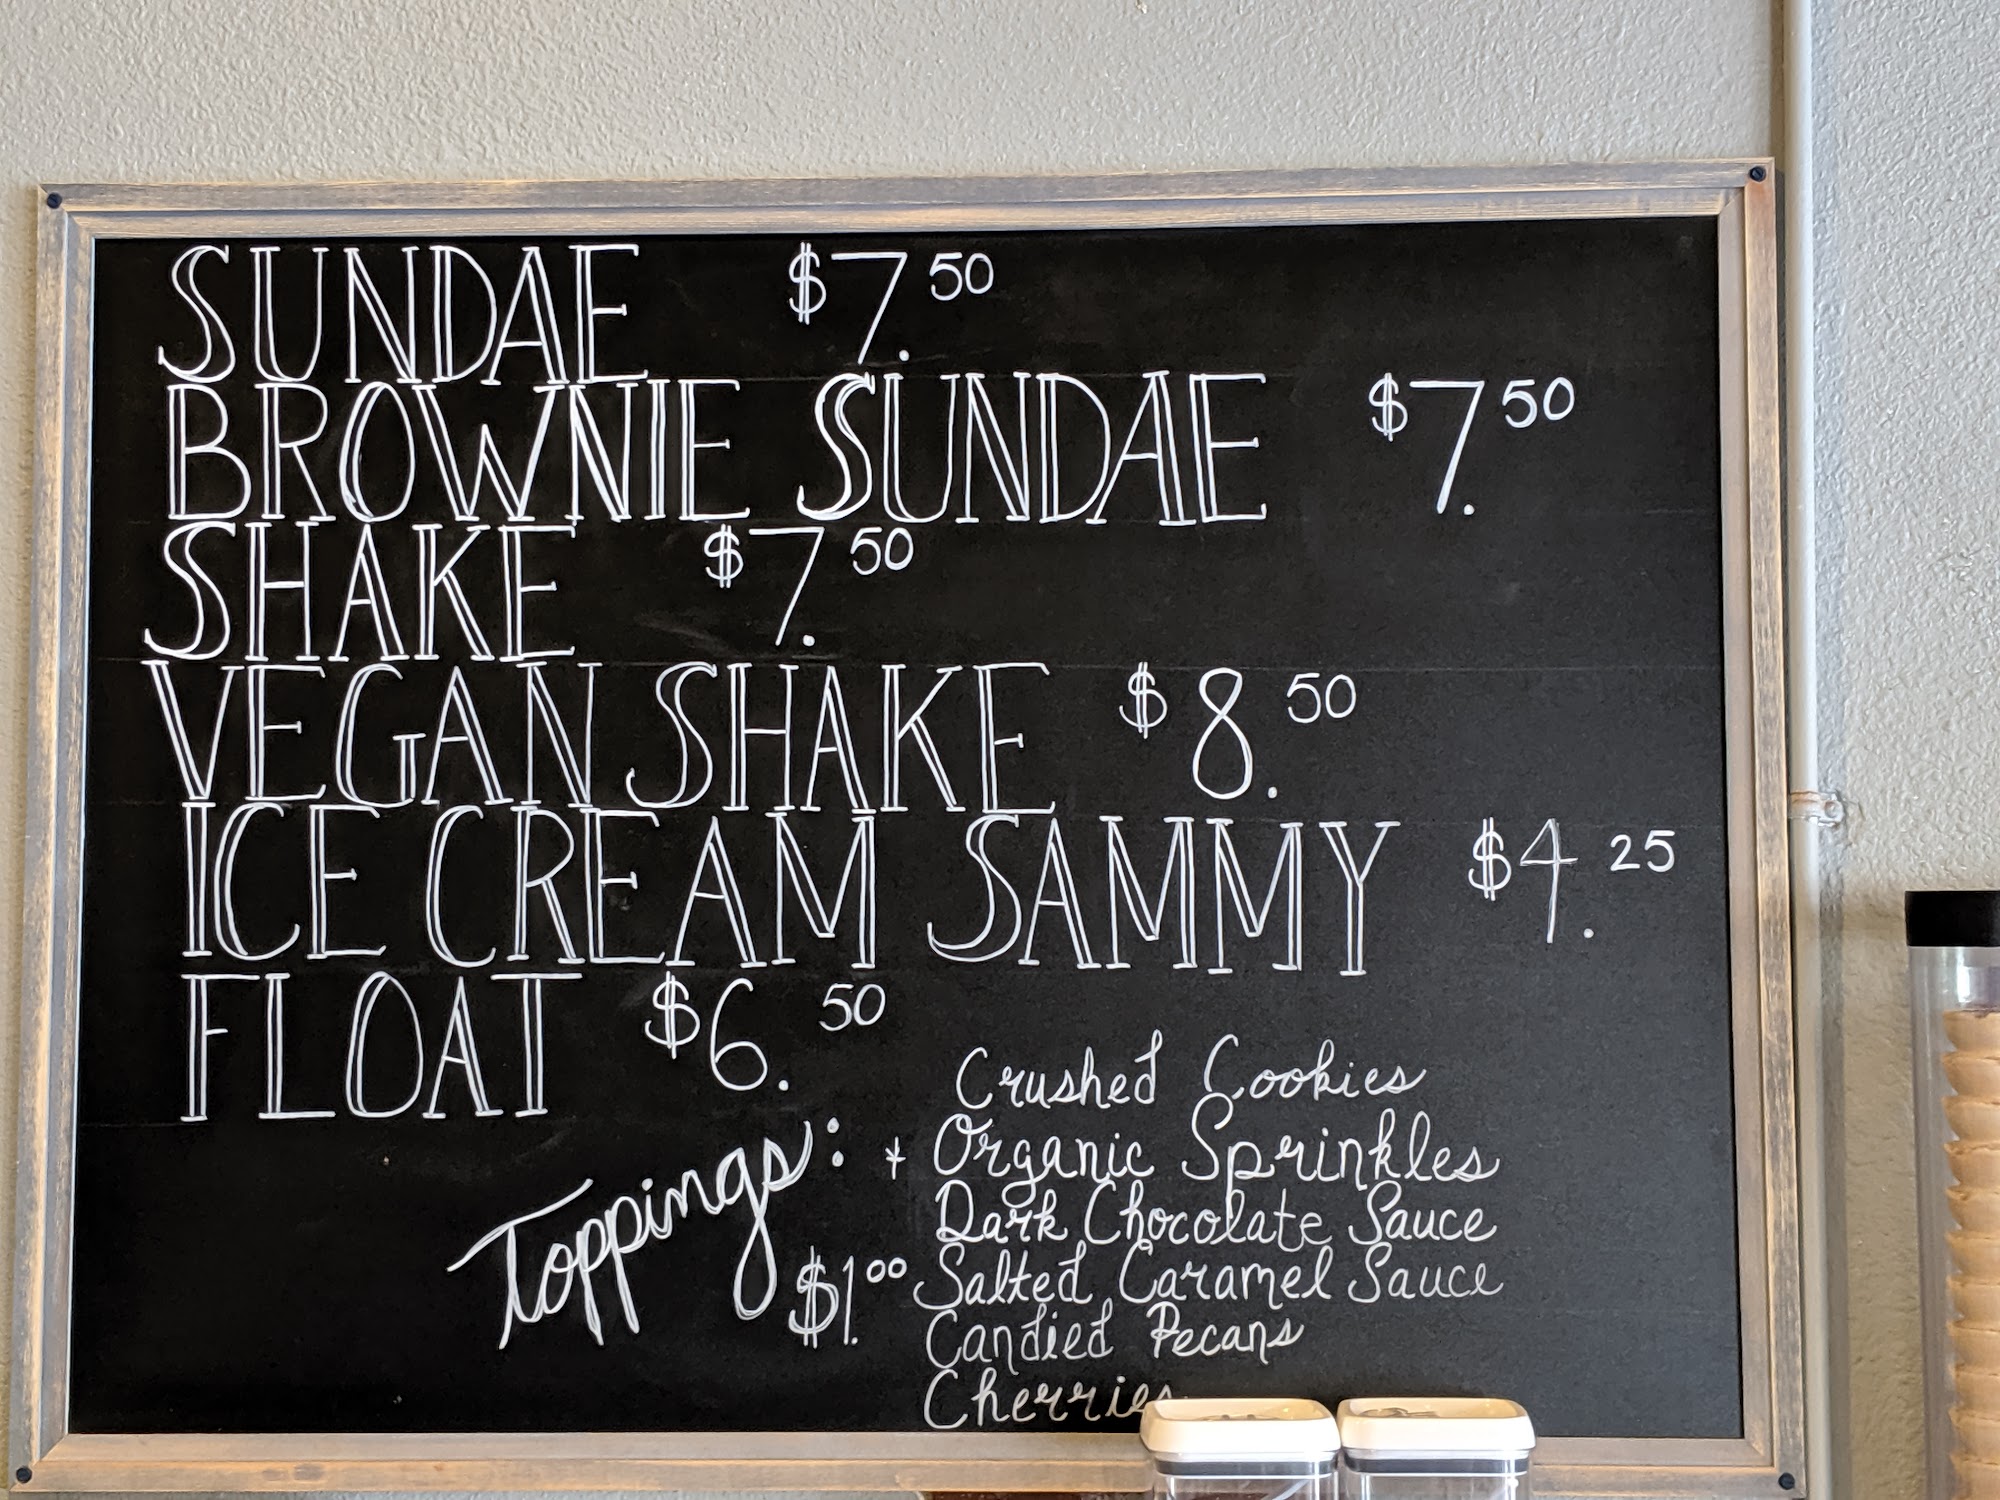 SUNDAE $7.50
BROWNIE SUNDAE $7.50
SHAKE $7.50
VEGAN SHAKE $8.50
ICE CREAM SAMMY $4.25
FLOAT $6.50
Toppings: $1.00
Crushed Cookies
* Organic Sprinkles
Dark Chocolate Sauce
Salted Caramel Sauce
Candied Pecans
Cherries